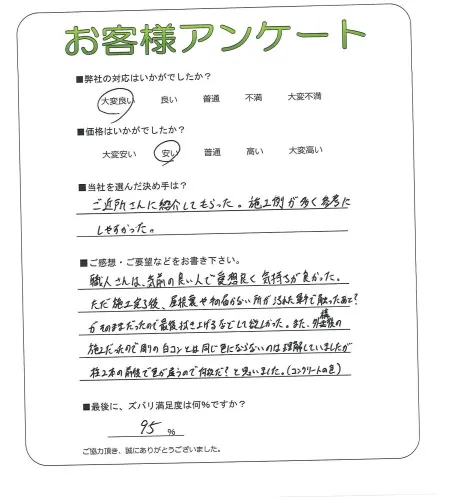 お客様アンケート
■弊社の対応はいかがでしたか？
大変良い 良い 普通 不満 大変不満
■価格はいかがでしたか？
大変安い 安い 普通 高い 大変高い
■当社を選んだ決め手は？
ご近所さんに紹介してもらった。施工例が多く参考に
しやすかった。
■ご感想・ご要望などをお書き下さい。
職人さんは、気前の良い人で愛想良く気持ちが良かった。
ただ施工完了後、屋根裏や その届かない所が 軍手で触ったあと？
がそのままだったので最後拭き上げるなどして欲しかった。また、外構後の
施工だったので周りの白コンとは同じ色にならないのは理解していましたが
柱2本の前後で色が違うので何故だ？と思いました。(コンクリートの色)
■最後に、ズバリ満足度は何％ですか？
95 %
ご協力頂き、誠にありがとうございました。